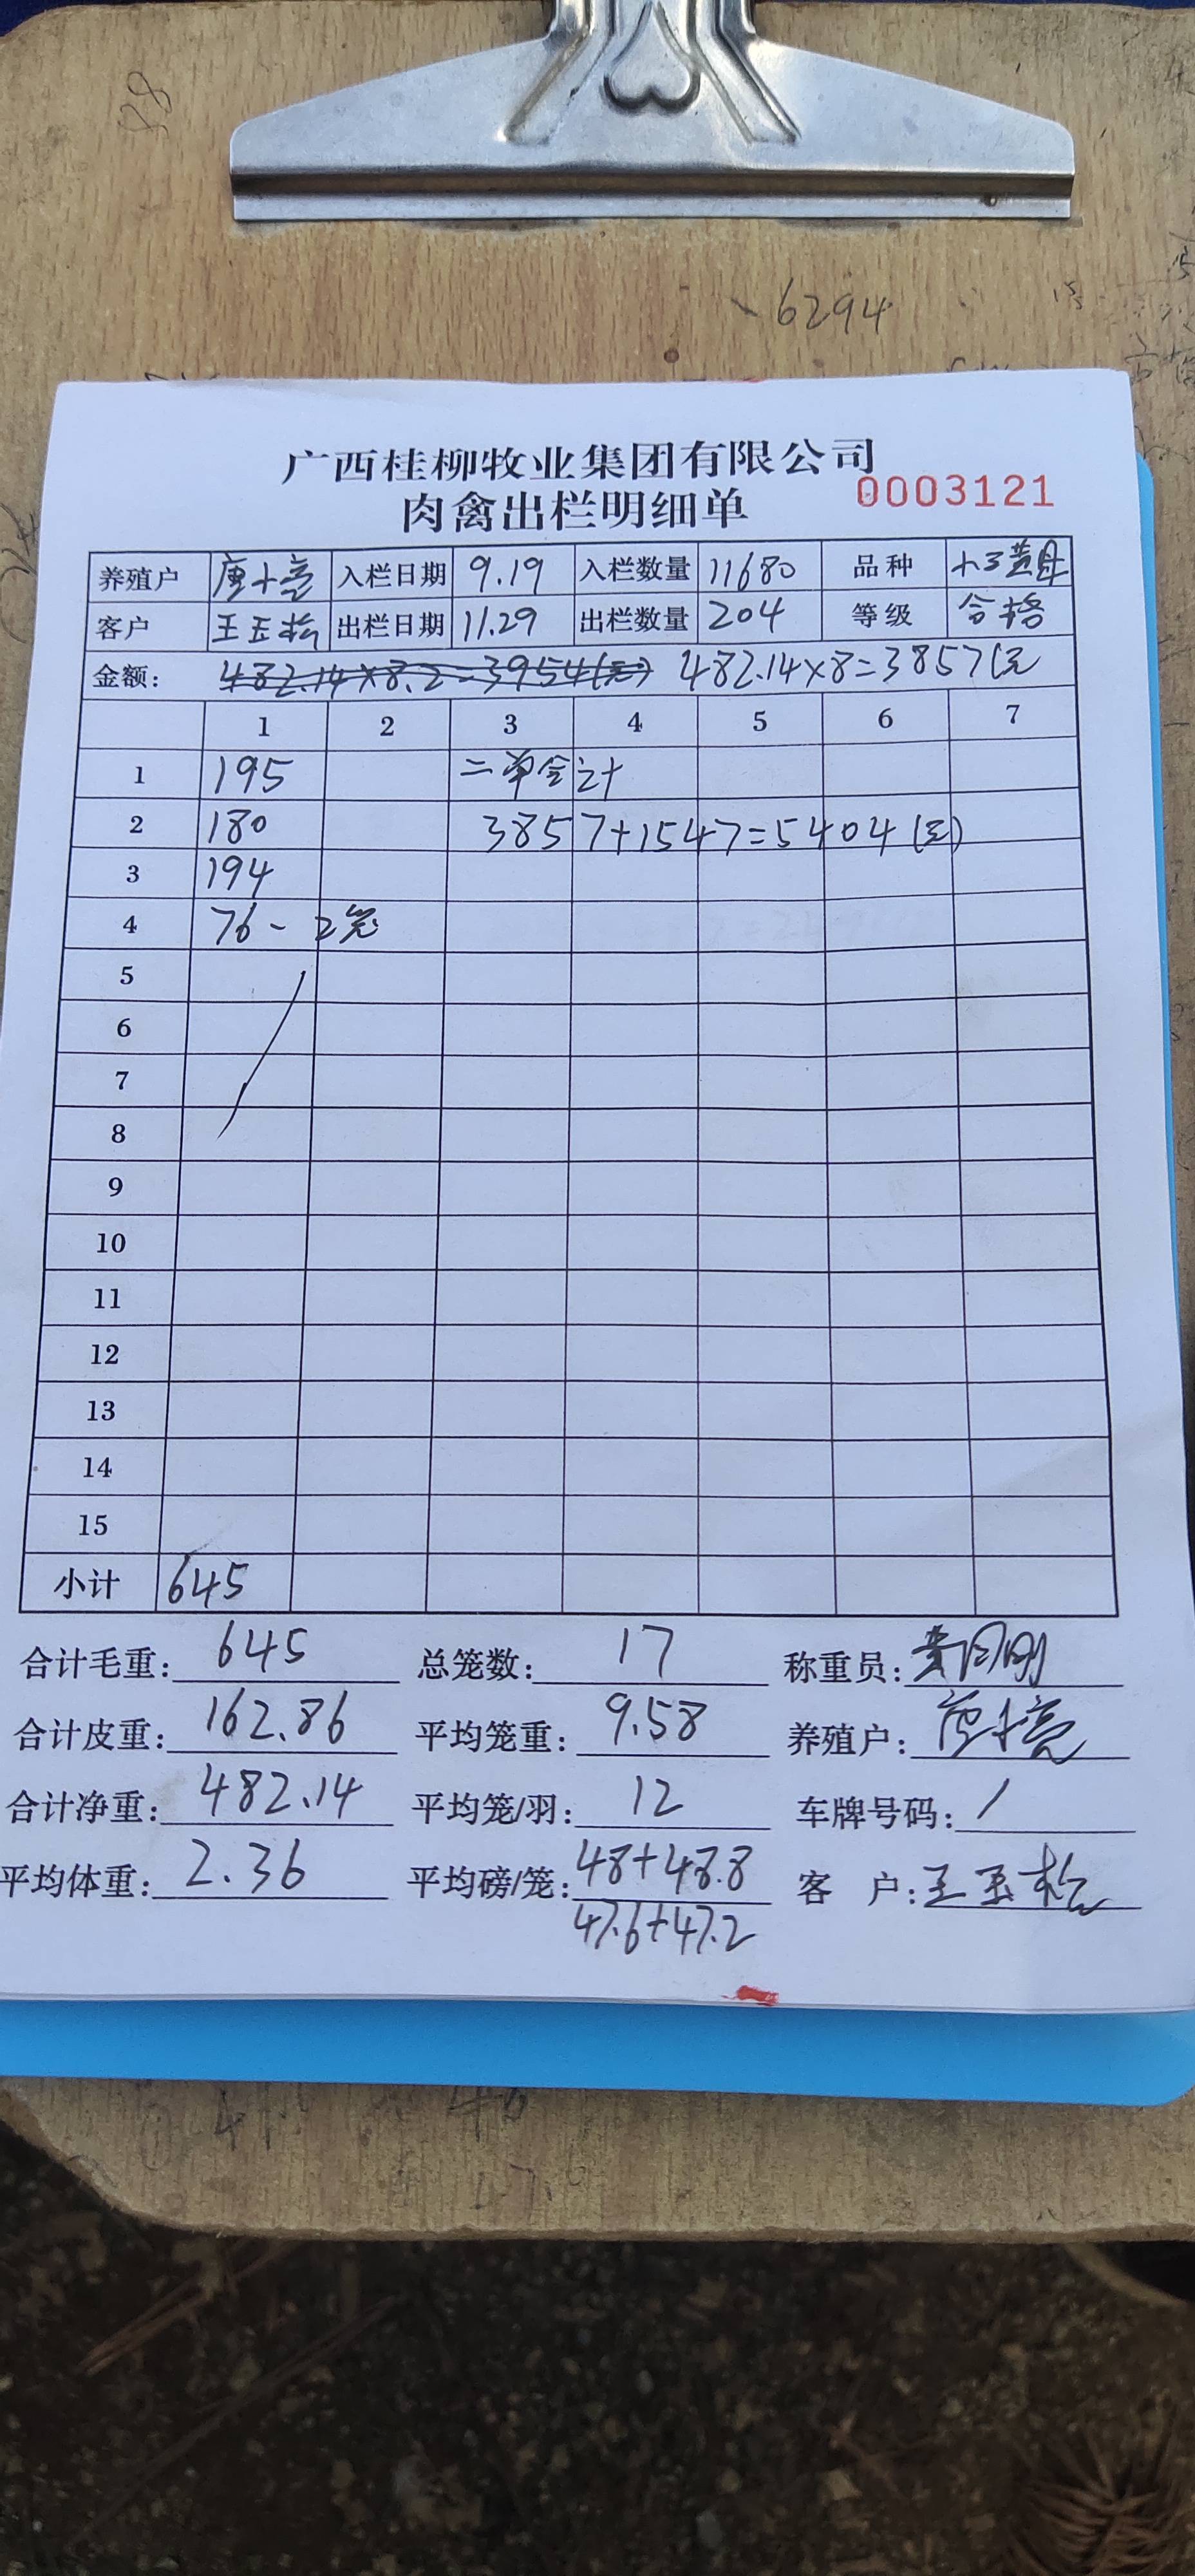 6294
广西桂柳牧业集团有限公司
肉禽出栏明细单 0003121
养殖户 唐小亮 入栏日期 9.19 入栏数量 11680 品种
客户 王玉松 出栏日期 11.29 出栏数量 204 等级 合格
金额: 482.14×8.2=3954(元) 482.14×8=3857(元
1 2 3 4 5 6 7
1 195 二单合计
2 180 3857+1547=5404(元)
3 194
4 76-2笼
5
6
7
8
9
10
11
12
13
14
15
小计 645
合计毛重: 645 总笼数: 17 称重员:
合计皮重: 162.86 平均笼重: 9.58 养殖户:
合计净重: 482.14 平均笼/羽: 12 车牌号码: /
平均体重: 2.36 平均磅/笼: 48+48.8 客 户: 王玉松
47.6+47.2